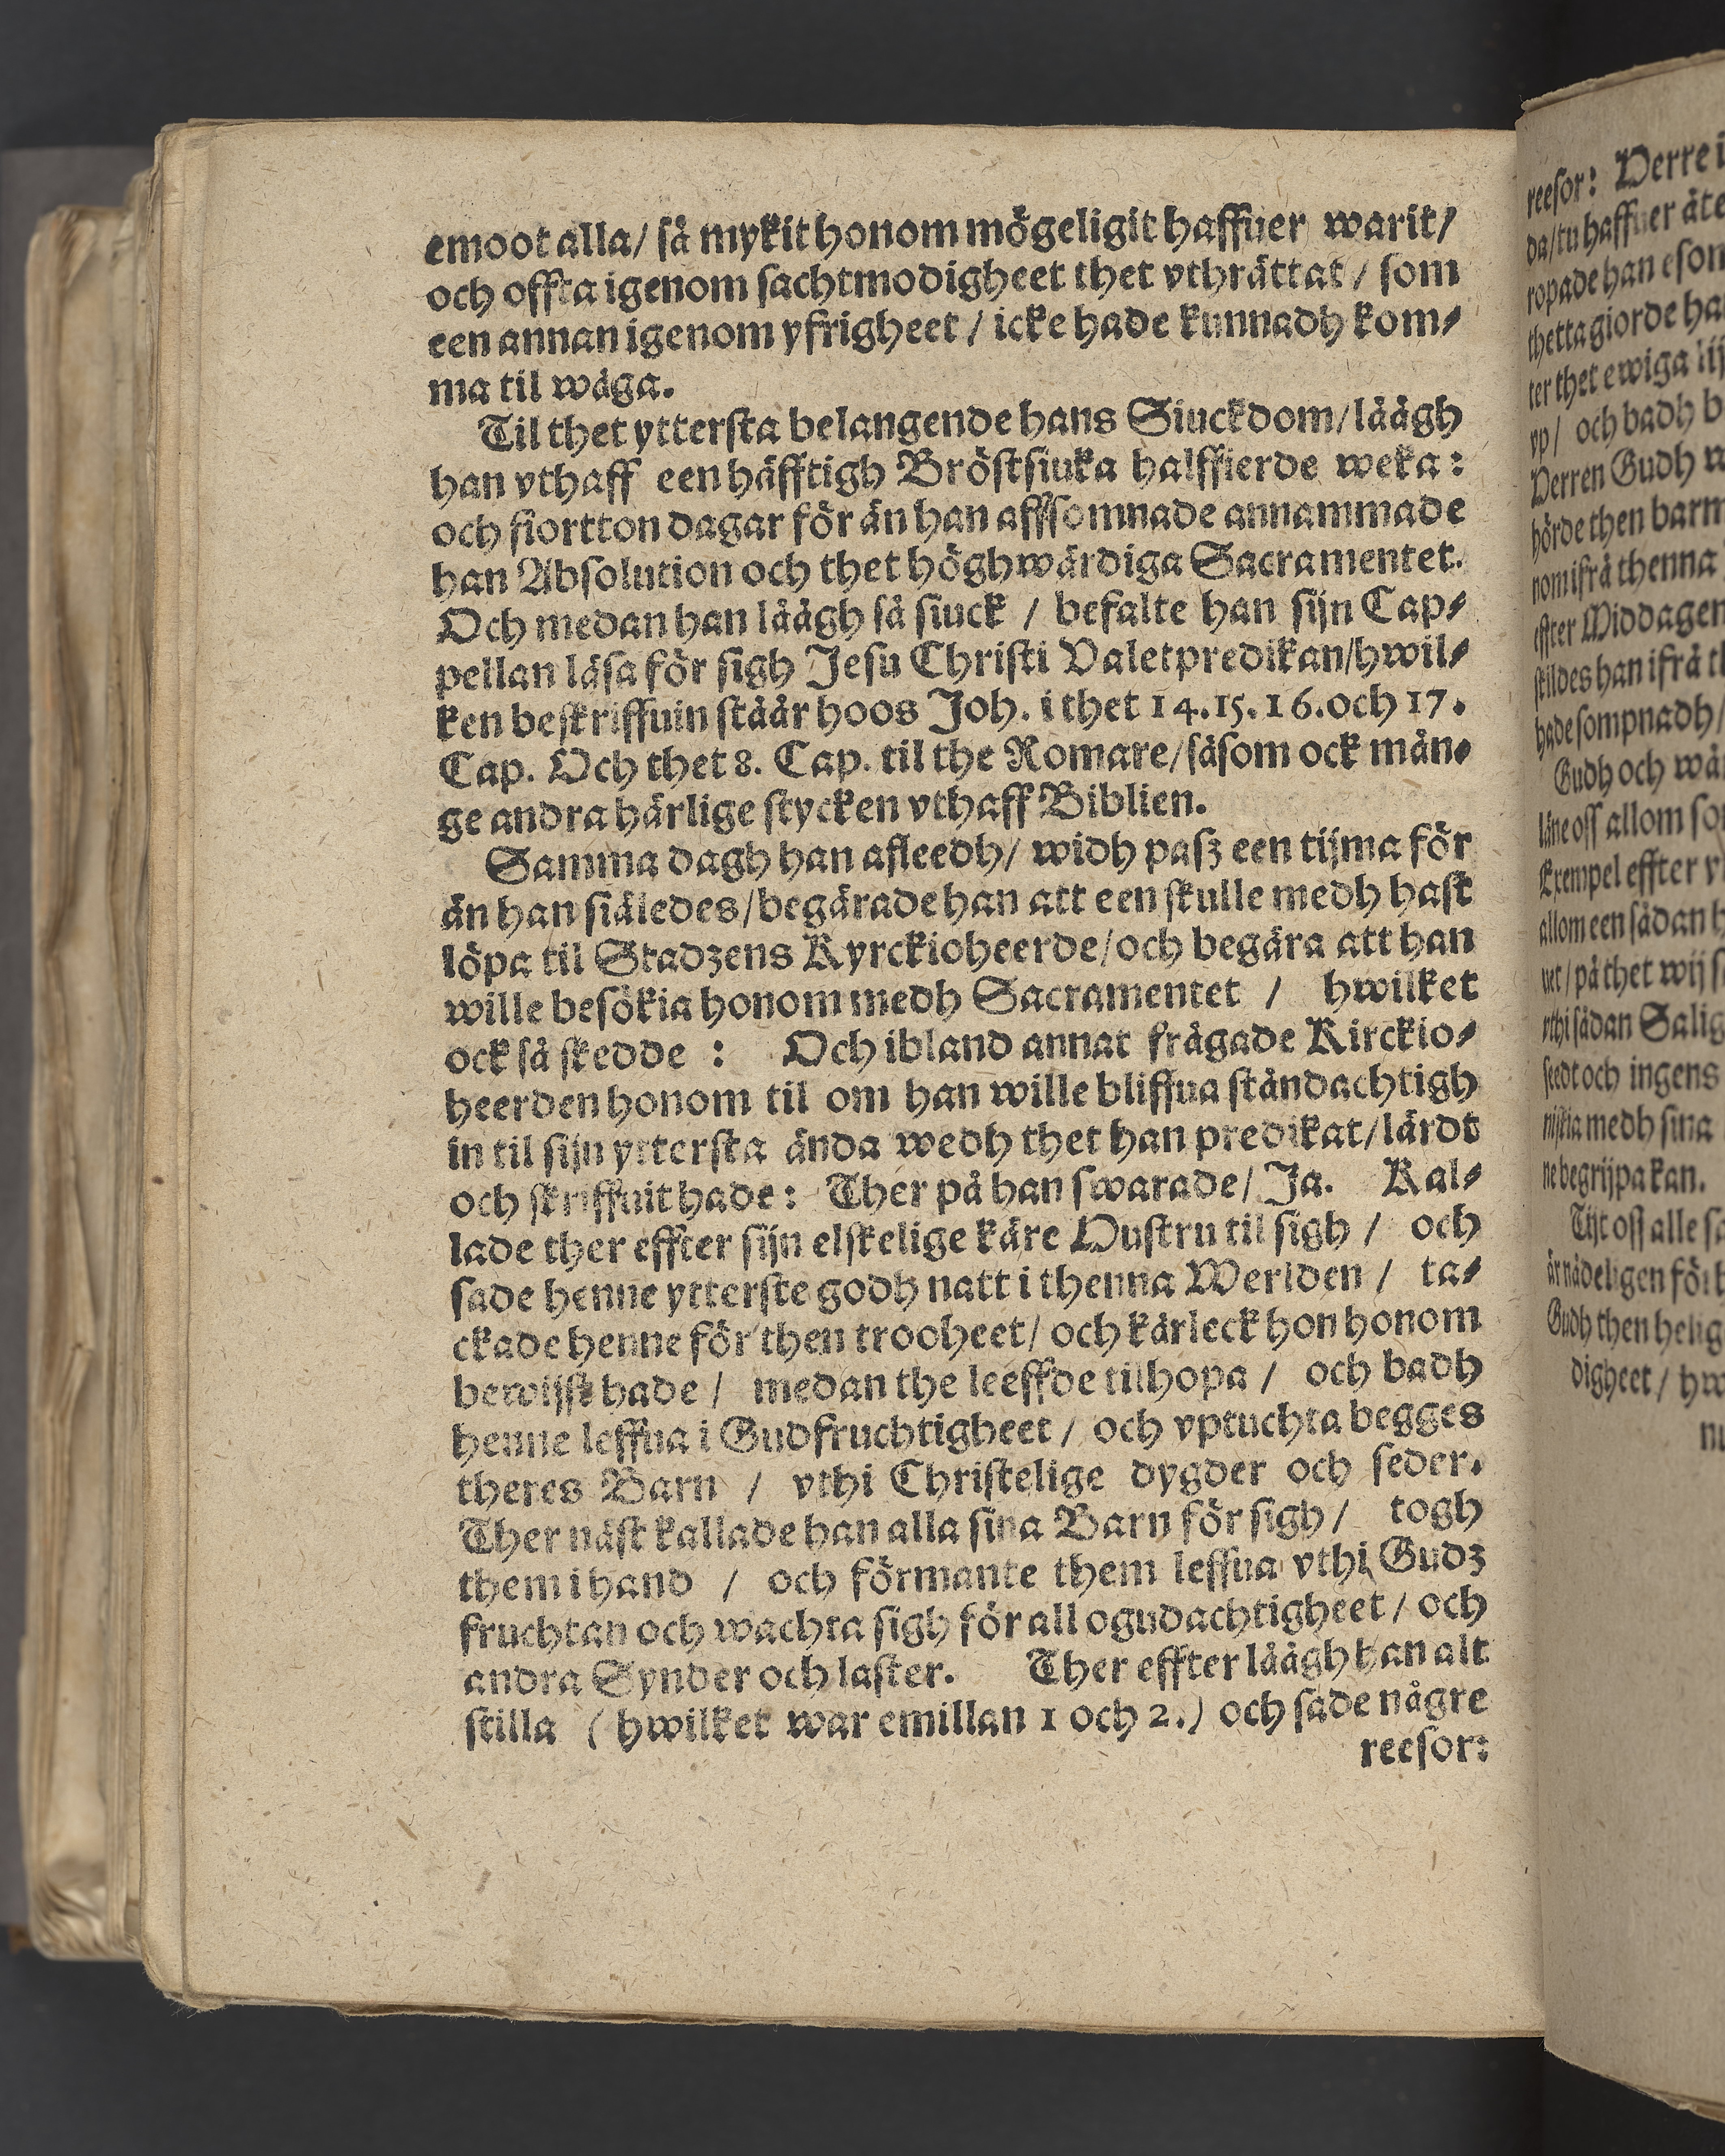 emoot alla/ så mykit honom mögeligit haffuer warit/
och offta igenom sachtmodigheet thet vthrättat / som
een annan igenom yfrigheet / icke hade kunnadh kom⸗
ma til wäga.
Til thet yttersta belangende hans Siuckdom/ låågh
han vthaff een häfftigh Bröstsiuka halffierde weka:
och fiortton dagar för än han affsomnade annammade
han Absolution och thet höghwärdiga Sacramentet.
Och medan han låågh så siuck / befalte han sijn Cap⸗
pellan läsa för sigh Jesu Christi Valetpredikan/hwil⸗
ken beskriffuinståår hoos Joh. i thet 14.15.16.och 17.
Cap. Och thet 8. Cap. til the Romare/såsom ock mån⸗
ge andra härlige stycken vthaff Biblien.
Samma dagh han afleedh/ widh pasz een tijma för
än han siäledes/begärade han att een skulle medh hast
löpa til Stadzens Kyrckioheerde/och begära att han
wille besökia honom medh Sacramentet / hwilket
ock så skedde : Och ibland annat frågade Kirckio⸗
heerden honom til om han wille bliffua ståndachtigh
in til sijn yttersta ända wedh thet han predikat/lärdt
och skriffuit hade: Ther på han swarade/ Ja. Kal⸗
lade ther effter sijn elskelige käre Hustru til sigh / och
sade henne ytterste godh natt i thenna Werlden / ta⸗
ckade henne för then trooheet/ och kärleck hon honom
bewijst hade / medan the leeffde tilhopa / och badh
henne leffua i Gudfruchtigheet / och vptuchta begges
theres Barn / vthi Christelige dygder och seder.
Ther näst kallade han alla sina Barn för sigh / togh
them i hand / och förmante them leffua vthi Gudz
fruchtan och wachta sigh för all ogudachtigheet / och
andra Synder och laster. Ther effter låågh han alt
stilla (hwilket war emillan 1 och 2.) och sade någre
reesor:
reesor: Herre
da/tu haffuer åte
ropade han
thetta giorde
ter thet ewiga
vp/ och badh
Herren Gudh
hörde then
thenna
effter Middagen
han ifrå
hade sompnadh/
Gudh och
läne oss allom
Exempel effter
allom een sådan
på thet wij
sådan
och ingens
medh sina
ne begrijpa kan.
oss alle
nådeligen
Gudh then
digheet /